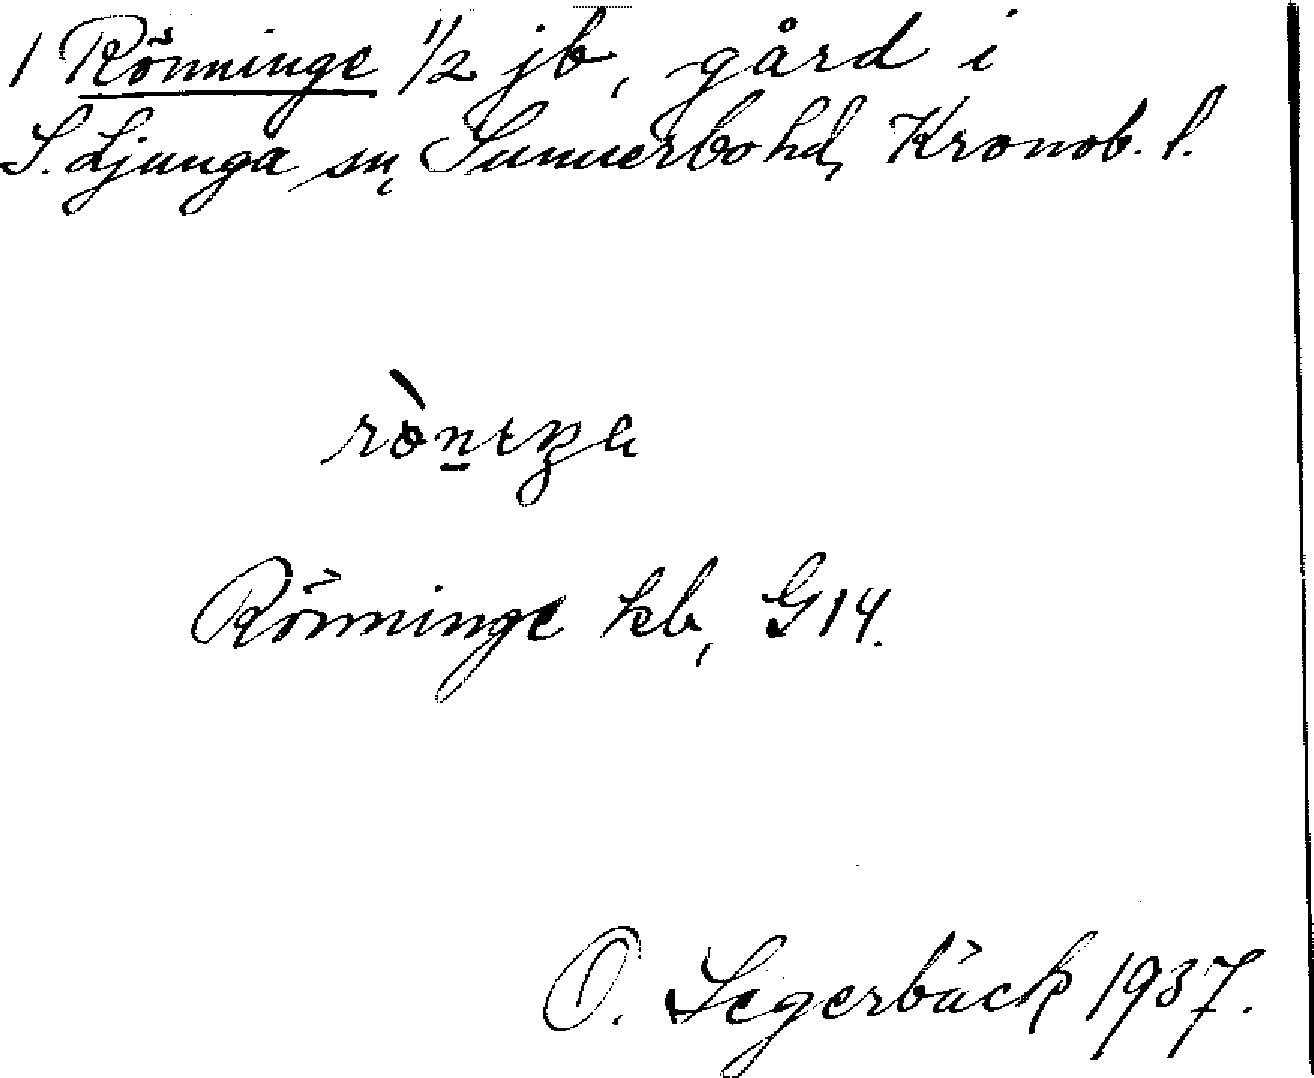 1 Rönninge 1/2 jb, gård i
S. Ljunga sn, Sunnerbo hd, Kronob. l.
Rönninge kb, G14.
O. Segerbäck 1937.